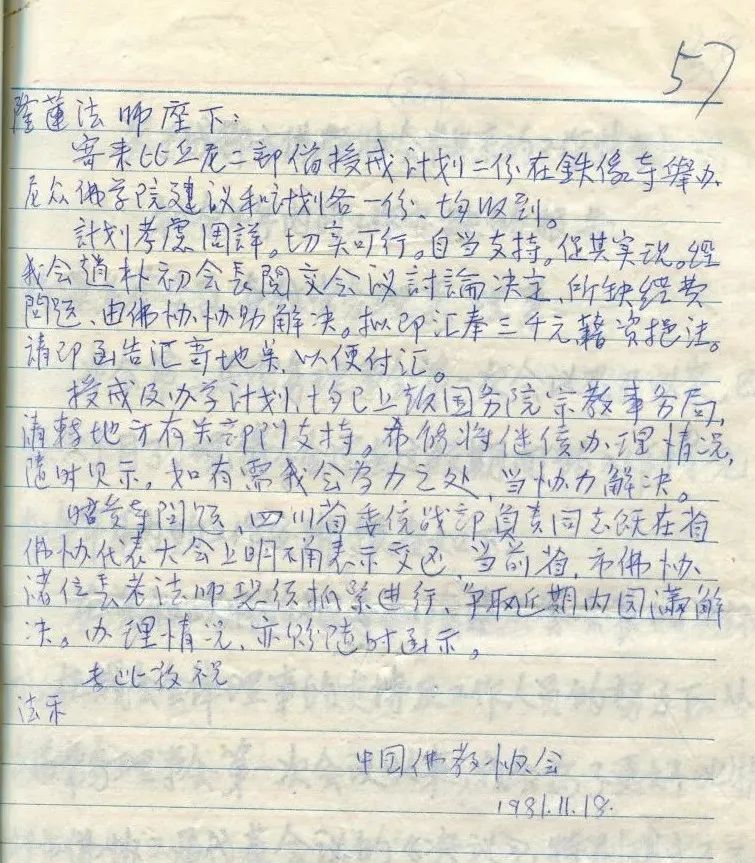 57
隆蓮法师座下:
寄来比丘尼二部僧授戒计划二份,在鉄像寺舉办
尼众佛学院建议和计划各一份,均收到。
计划考慮周詳。切实可行。自当支持。促其实现。经
我会趙朴初会长閱交会议討論决定,所缺经费
問题、由佛协协助解决。拟即汇奉三千元,藉资挹注。
請即函告汇寄地点,以便付汇。
授戒及办学计划,均已上报国务院宗教事务局,
清轉地方有关部門支持。希修将继续办理情况,
随时见示。如有需我会为力之处,当协力解决。
昭觉寺問题,四川省委统战部負责同志既在省
佛协代表大会上明确表示交还,当前省,市佛协
诸位長老法师现须抓紧进行,争取近期内圆滿解
决。办理情况,亦盼随时函示。
专此敬祝
法乐
中国佛教协会
1981.11.18.